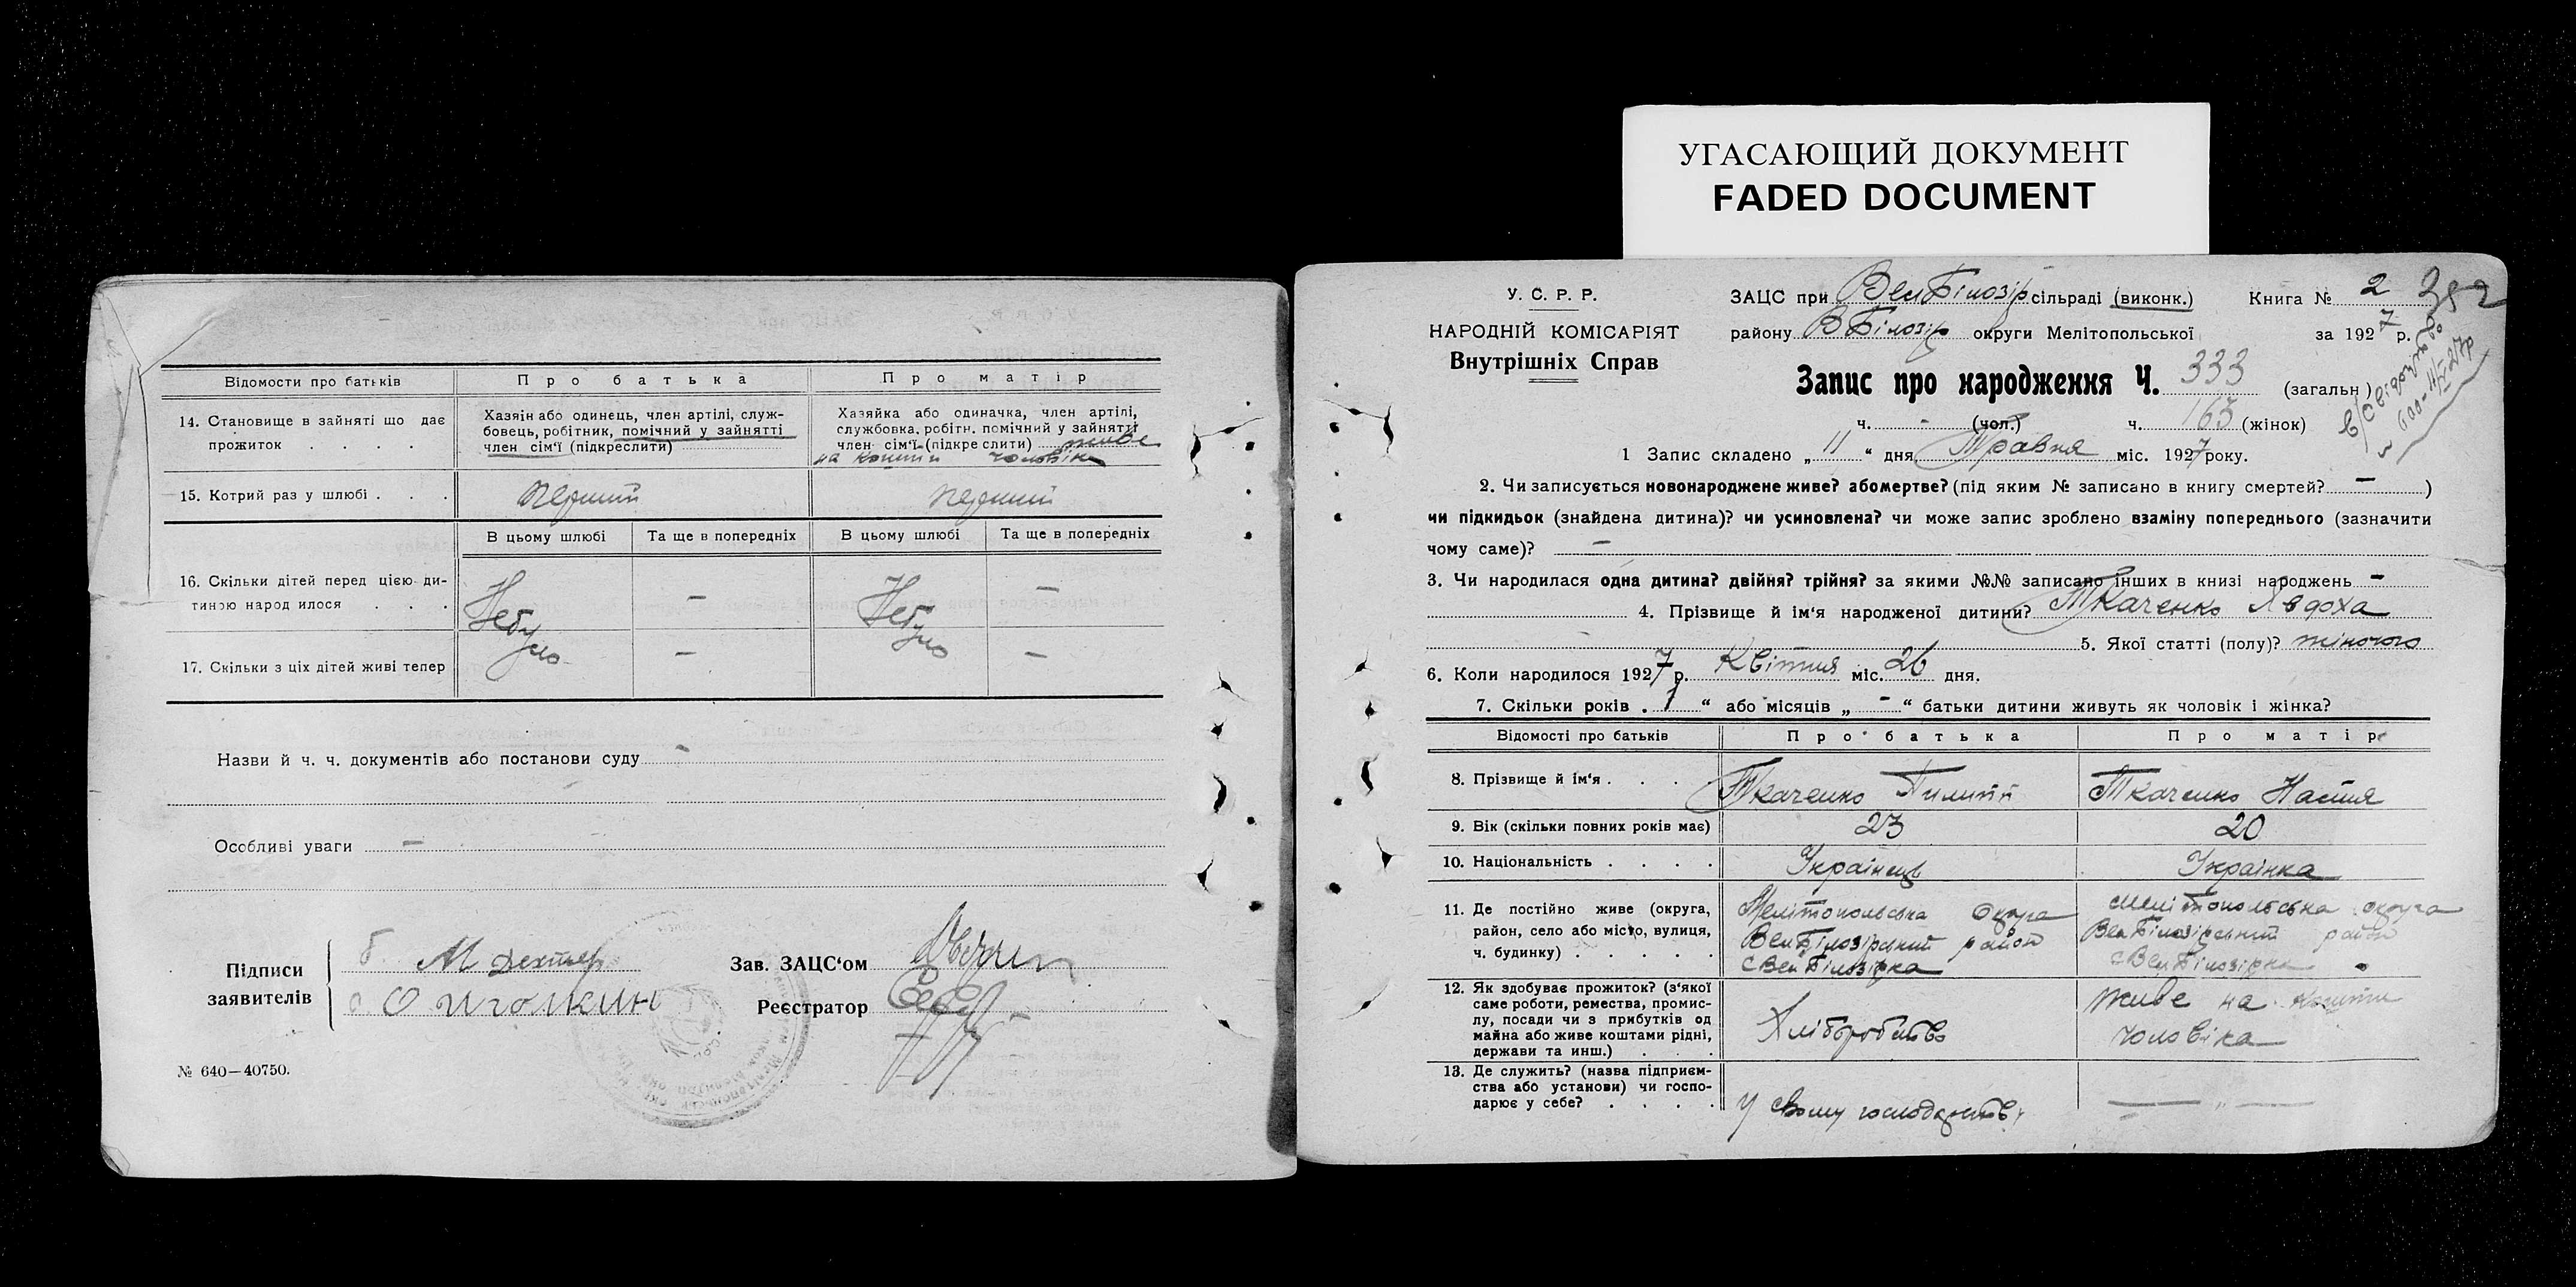 УГАСАЮЩИЙ ДОКУМЕНТ
FADED DOCUMENT
Відомости про батьків
Про батька
Про матір
14. Становище в зайняті що дає прожиток . . . .
Хазяін або одинець, член артілі, служ-
бовець, робітник, помічний у зайнятті
член сім'ї (підкреслити)
Хазяйка або одиначка, член артілі,
службовка, робітн. помічний у зайнятті
член сім'ї (підкреслити) живе
на кошти чоловіка
15. Котрий раз у шлюбі . . .
перший
перший
В цьому шлюбі
Та ще в попередніх
В цьому шлюбі
Та ще в попередніх
16. Скільки дітей перед цією ди-
тиною народ илося . . .
Небуло
—
Небуло
—
17. Скільки з ціх дітей живі тепер
—
—
Назви й ч. ч. документів або постанови суду —
Особливі уваги —
Підписи
заявителів
Зав. ЗАЦС'ом
Реєстратор
№ 640—40750.
У. С. Р. Р.
НАРОДНІЙ КОМІСАРІЯТ
Внутрішніх Справ
ЗАЦС при Вел Білозір сільраді (виконк.)
Книга № 2
352
району В Білозір округи Мелітопольської
за 1927 р.
Запис про народження Ч. 333 (загальн)
ч. - (чол.) ч. 165 (жінок)
1 Запис складено „ 11 “ дня Травня міс. 1927 року.
2. Чи записується новонароджене живе? або мертве? (під яким № записано в книгу смертей? — )
чи підкидьок (знайдена дитина)? чи усиновлена? чи може запис зроблено взаміну попереднього (зазначити
чому саме)? —
3. Чи народилася одна дитина? двійня? трійня? за якими №№ записано інших в книзі народжень -
4. Прізвище й ім'я народженої дитини? Ткаченко Явдоха
5. Якої статті (полу)? жіночого
6. Коли народилося 1927 р. Квітня міс. 26 дня.
7. Скільки років „ 1 “ або місяців „ - “ батьки дитини живуть як чоловік і жінка?
Відомості про батьків
Про батька
Про матір
8. Прізвище й ім'я . . .
Ткаченко Пилипп
Ткаченко Настя
9. Вік (скільки повних років має)
23
20
10. Національність . . . .
Українець
Українка
11. Де постійно живе (округа,
район, село або місто, вулиця,
ч. будинку) . . . . .
Мелітопольська округа
Вел Білозірський район
с Вел Білозірка
Мелітопольська округа
Вел Білозірський район
с Вел Білозірка
12. Як здобуває прожиток? (з'якої
саме роботи, ремества, промис-
лу, посади чи з прибутків од
майна або живе коштами рідні,
держави та инш.) . . .
Хліборобство
Живе на кошти
чоловіка
13. Де служить? (назва підприєм-
ства або установи) чи госпо-
дарює у себе? . . . .
У свому господарстві
— „ —